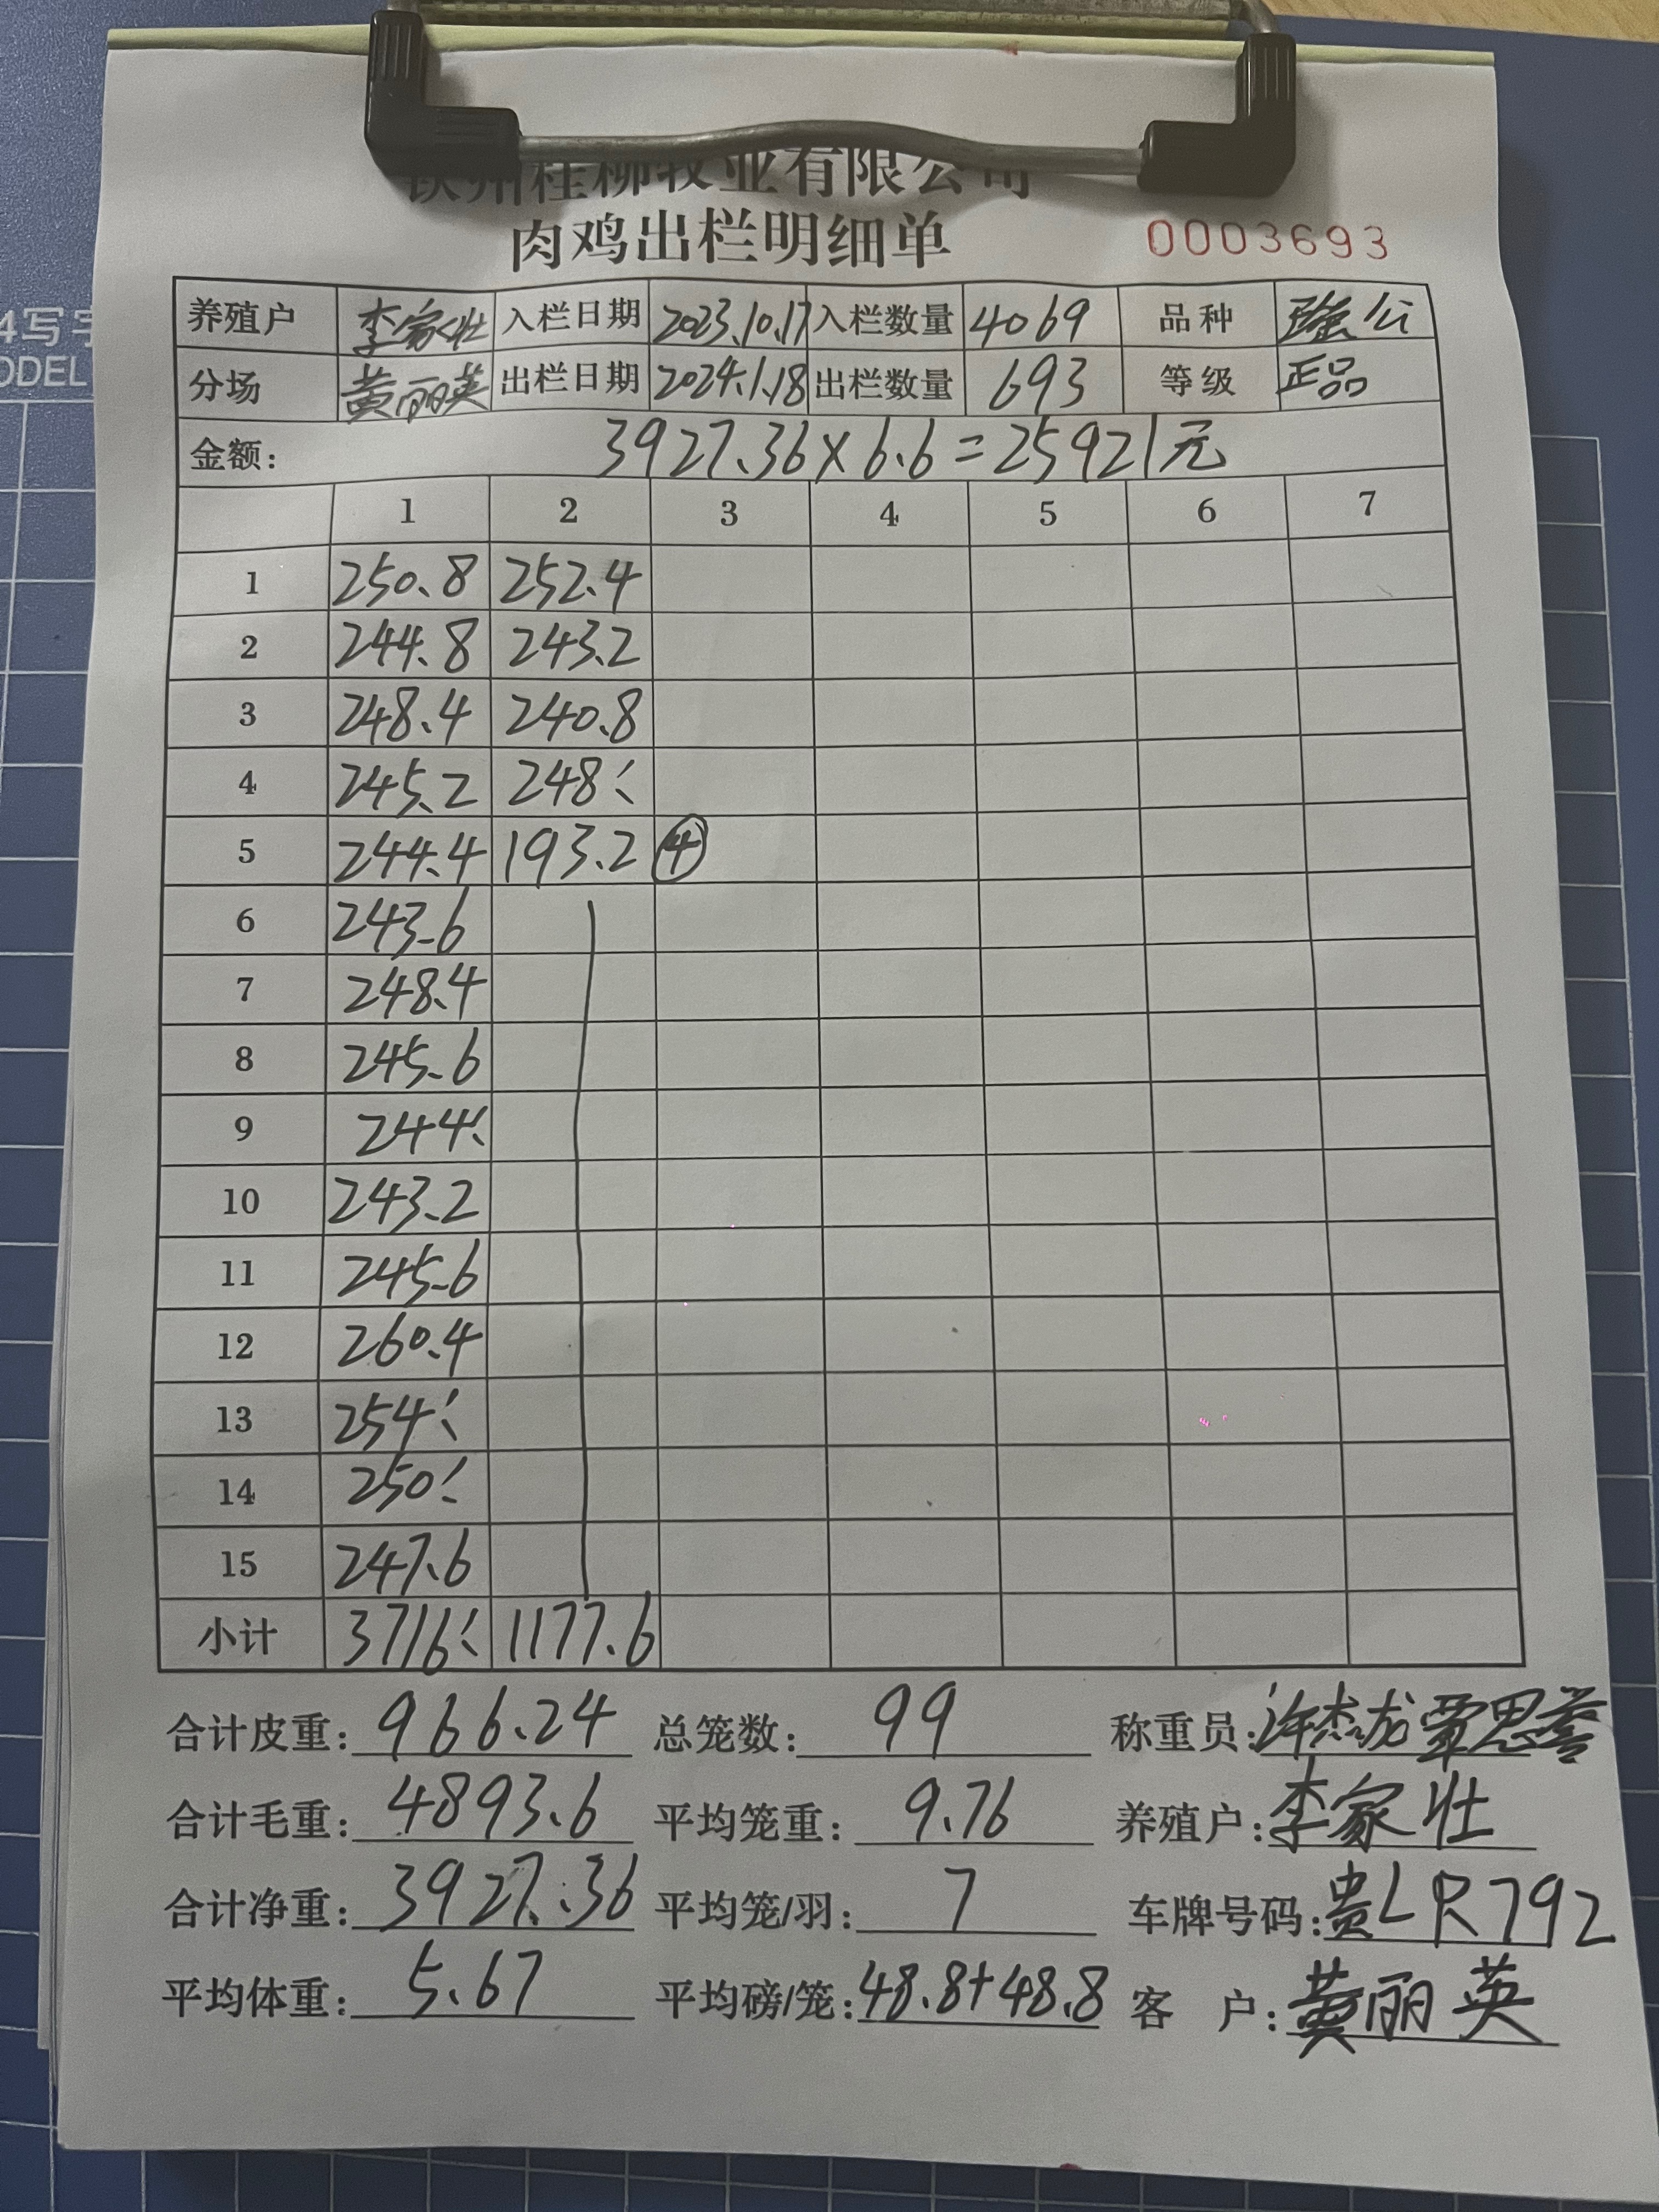 钦州桂柳牧业有限公司
肉鸡出栏明细单 0003693
养殖户 李家壮 入栏日期 2023.10.17 入栏数量 4069 品种 瑶公
分场 黄丽英 出栏日期 2024.1.18 出栏数量 693 等级 正品
金额: 3927.36×6.6=25921元
1 2 3 4 5 6 7
1 250.8 252.4
2 244.8 243.2
3 248.4 240.8
4 245.2 248:
5 244.4 193.2 ④
6 243.6
7 248.4
8 245.6
9 244:
10 243.2
11 245.6
12 260.4
13 254:
14 250:
15 247.6
小计 3716: 1177.6
合计皮重: 966.24 总笼数: 99 称重员: 许杰龙 覃思
合计毛重: 4893.6 平均笼重: 9.76 养殖户: 李家壮
合计净重: 3927.36 平均笼/羽: 7 车牌号码: 贵LR792
平均体重: 5.67 平均磅/笼: 48.8+48.8 客 户: 黄丽英
4写字
ODEL